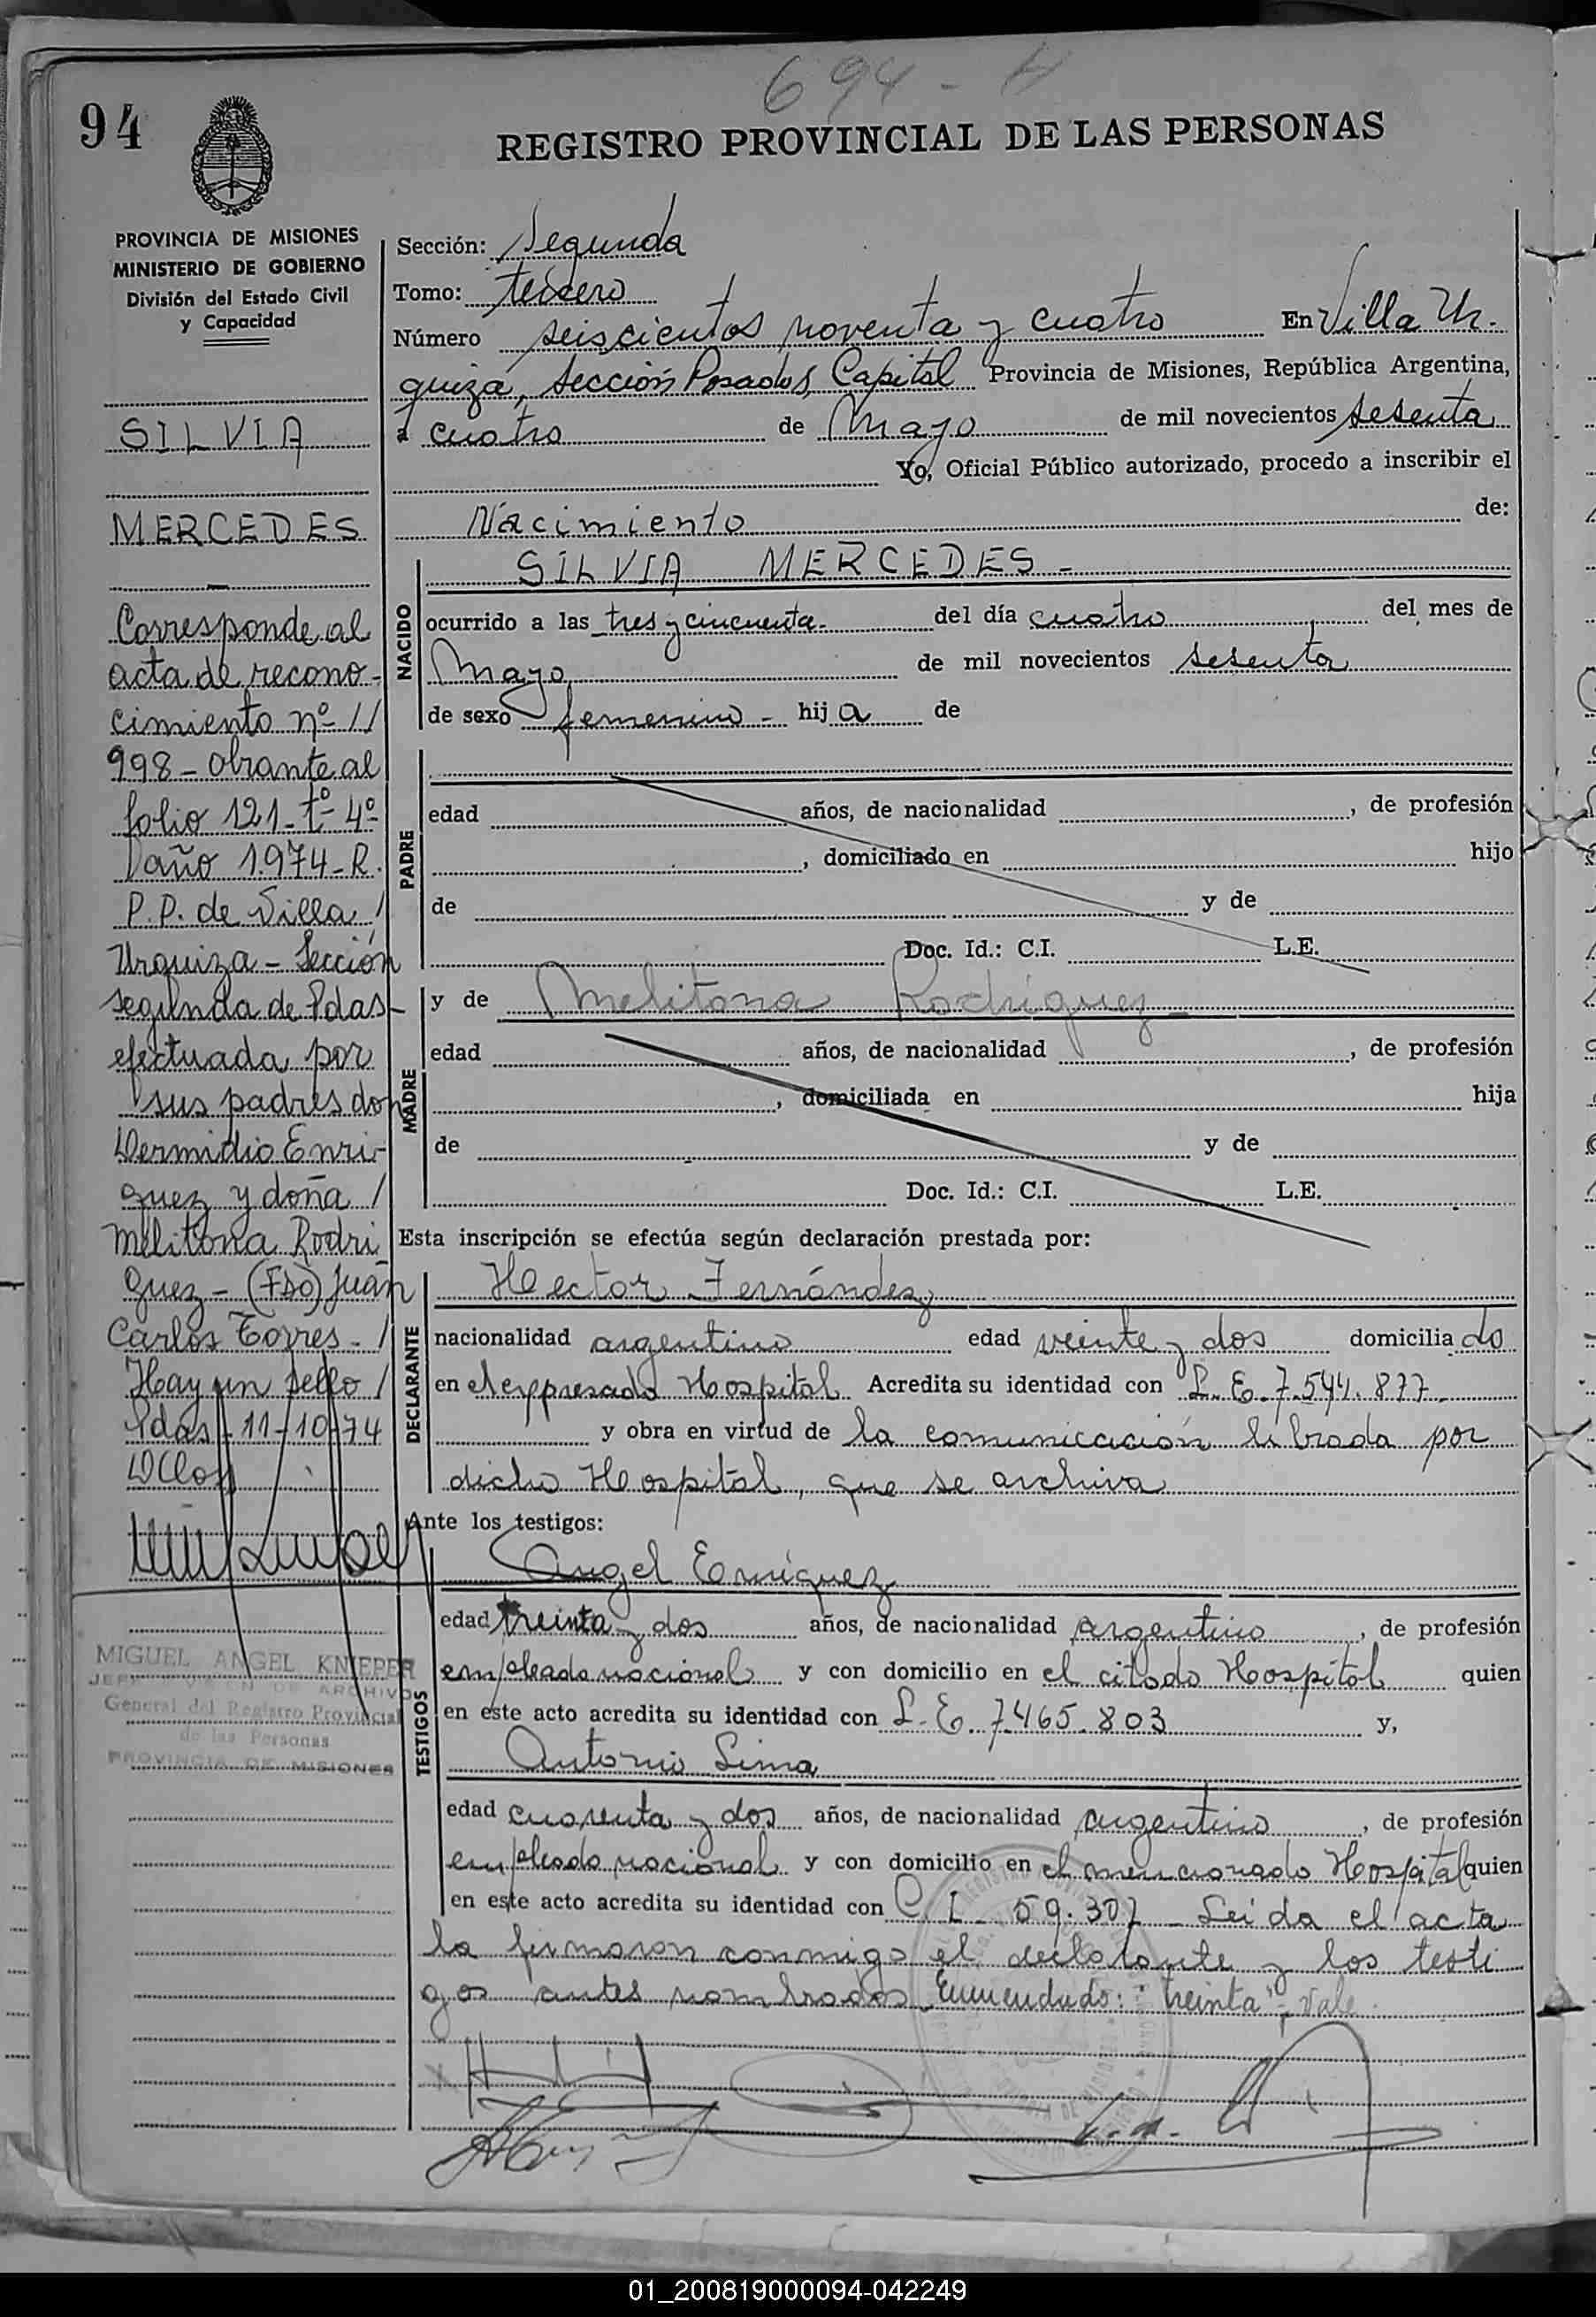 694-H
94
REGISTRO PROVINCIAL DE LAS PERSONAS
PROVINCIA DE MISIONES
MINISTERIO DE GOBIERNO
División del Estado Civil
y Capacidad
SILVIA
MERCEDES
Corresponde al
acta de recono-
cimiento nº //
998 - obrante al
folio 121 - tº 4º
año 1974 - R.
P.P. de Villa /
Urquiza - Sección
segunda de Pdas -
efectuada por
sus padres don
Dermidio Enri-
quez y doña /
Melitona Rodri
guez - (Fdo) Juan
Carlos Torres - /
Hay un sello /
Pdas - 11-10-74
MIGUEL ANGEL KNIEPER
JEFE DIVISION DE ARCHIVOS
General del Registro Provincial
de las Personas
PROVINCIA DE MISIONES
Sección: Segunda
Tomo: tercero
Número seiscientos noventa y cuatro En Villa Ur-
quiza, Sección Posadas, Capital Provincia de Misiones, República Argentina,
a cuatro de Mayo de mil novecientos sesenta
Yo, Oficial Público autorizado, procedo a inscribir el
Nacimiento de:
NACIDO
SILVIA MERCEDES -
ocurrido a las tres y cincuenta - del día cuatro del mes de
Mayo de mil novecientos sesenta
de sexo femenino - hija de
PADRE
edad años, de nacionalidad , de profesión
, domiciliado en hijo
de y de
Doc. Id.: C.I. L.E.
MADRE
y de Melitona Rodriguez -
edad años, de nacionalidad , de profesión
, domiciliada en hija
de y de
Doc. Id.: C.I. L.E.
Esta inscripción se efectúa según declaración prestada por:
DECLARANTE
Hector Fernández
nacionalidad argentino edad veinte y dos domiciliado
en el expresado Hospital Acredita su identidad con L.E. 7.544.877
y obra en virtud de la comunicación librada por
dicho Hospital, que se archiva
Ante los testigos:
TESTIGOS
Angel Enriquez
edad treinta y dos años, de nacionalidad argentino , de profesión
empleado nacional y con domicilio en el citado Hospital quien
en este acto acredita su identidad con L.E. 7.465.803 y,
Antonio Lima
edad cuarenta y dos años, de nacionalidad argentino , de profesión
empleado nacional y con domicilio en el mencionado Hospital quien
en este acto acredita su identidad con C.I. 59.307 - Leida el acta
la firmaron conmigo el declarante y los testi
gos antes nombrados. Enmendado: "treinta" - Vale.
01_200819000094-042249